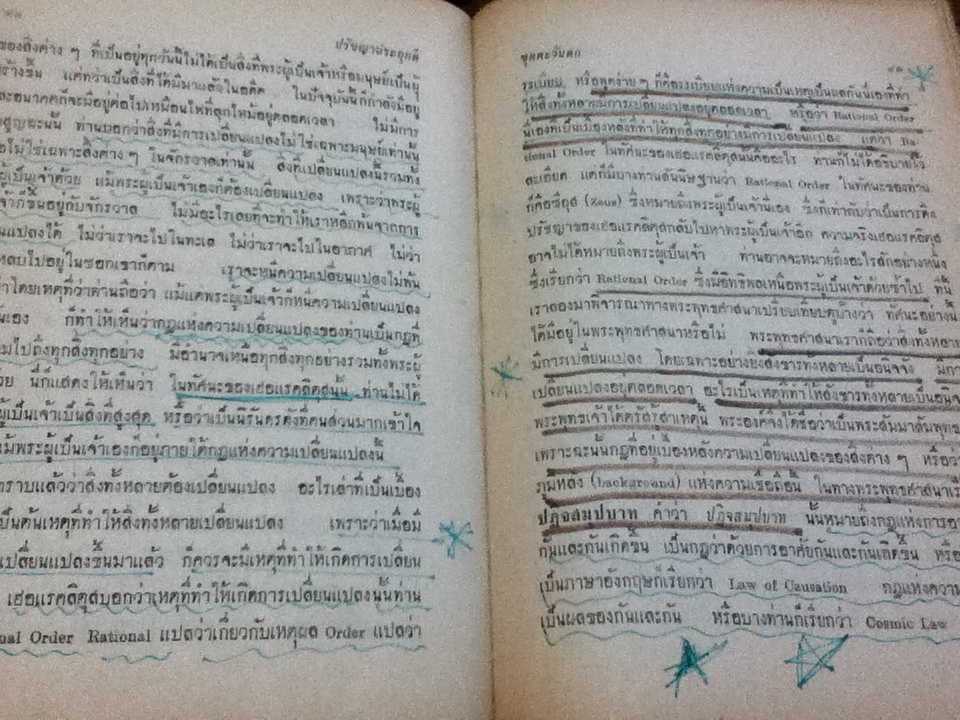 ปรัชญาประยุกต์
ของสิ่งต่าง ๆ ที่เป็นอยู่ทุกวันนี้ไม่ได้เป็นสิ่งที่พระผู้เป็นเจ้าหรือมนุษย์เป็นผู้
สร้างขึ้น แต่ทว่าเป็นสิ่งที่ได้มีมาแล้วในอดีต ในปัจจุบันนี้ก็กำลังมีอยู่
และอนาคตก็จะมีอยู่ต่อไปเหมือนไฟที่ลุกไหม้อยู่ตลอดเวลา ไม่มีการ
สูญฉะนั้น ท่านบอกว่าสิ่งที่มีการเปลี่ยนแปลงไม่ใช่เฉพาะมนุษย์เท่านั้น
ไม่ใช่เฉพาะสิ่งต่าง ๆ ในจักรวาลเท่านั้น สิ่งที่เปลี่ยนแปลงนี้รวมทั้ง
ผู้เป็นเจ้าด้วย แม้พระผู้เป็นเจ้าเองก็ต้องเปลี่ยนแปลง เพราะว่าพระผู้
เจ้าก็ขึ้นอยู่กับจักรวาล ไม่มีอะไรเลยที่จะทำให้เราหลีกพ้นจากการ
แปลงได้ ไม่ว่าเราจะไปในทะเล ไม่ว่าเราจะไปในอากาศ ไม่ว่า
หลบไปอยู่ในซอกเขาก็ตาม เราจะหนีความเปลี่ยนแปลงไม่พ้น
โดยเหตุที่ว่าท่านถือว่า แม้แต่พระผู้เป็นเจ้าก็หนีความเปลี่ยนแปลง
เอง ก็ทำให้เห็นว่ากฎแห่งความเปลี่ยนแปลงของท่านเป็นกฎที่
ไปถึงทุกสิ่งทุกอย่าง มีอำนาจเหนือทุกสิ่งทุกอย่างรวมทั้งพระผู้
นี้ก็แสดงให้เห็นว่า ในทัศนะของเฮอแรคลิตุสนั้น ท่านไม่ได้
ผู้เป็นเจ้าเป็นสิ่งที่สูงสุด หรือว่าเป็นนิรันดรดังที่คนส่วนมากเข้าใจ
แม้พระผู้เป็นเจ้าเองก็อยู่ภายใต้กฎแห่งความเปลี่ยนแปลงนี้
ทราบแล้วว่าสิ่งทั้งหลายต้องเปลี่ยนแปลง อะไรเล่าที่เป็นเบื้อง
เป็นต้นเหตุที่ทำให้สิ่งทั้งหลายเปลี่ยนแปลง เพราะว่าเมื่อมี
เปลี่ยนแปลงขึ้นมาแล้ว ก็ควรจะมีเหตุที่ทำให้เกิดการเปลี่ยน
เฮอแรคลิตุสบอกว่าเหตุที่ทำให้เกิดการเปลี่ยนแปลงนั้นท่าน
nal Order Rational แปลว่าเกี่ยวกับเหตุผล Order แปลว่า
ชุดตะวันตก
ระเบียบ หรือพูดง่าย ๆ ก็คือระเบียบแห่งความเป็นเหตุเป็นผลกันนี่เองที่ทำ
ให้สิ่งทั้งหลายมีการเปลี่ยนแปลงอยู่ตลอดเวลา หรือว่า Rational Order
นี่เองที่เป็นเบื้องหลังที่ทำให้ทุกสิ่งทุกอย่างมีการเปลี่ยนแปลง แต่ว่า Ra-
tional Order ในทัศนะของเฮอแรคลิตุสนั้นคืออะไร ท่านก็ไม่ได้อธิบายไว้
ละเอียด แต่ก็มีบางท่านสันนิษฐานว่า Rational Order ในทัศนะของท่าน
ก็คือซีอุส (Zeus) ซึ่งหมายถึงพระผู้เป็นเจ้านี่เอง ซึ่งก็เท่ากับว่าเป็นการดึง
ปรัชญาของเฮอแรคลิตุสกลับไปหาพระผู้เป็นเจ้าอีก ความจริงเฮอแรคลิตุส
อาจไม่ได้หมายถึงพระผู้เป็นเจ้า ท่านอาจจะหมายถึงอะไรสักอย่างหนึ่ง
ซึ่งเรียกว่า Rational Order ซึ่งมีอิทธิพลเหนือพระผู้เป็นเจ้าด้วยซ้ำไป ทีนี้
เราลองมาพิจารณาทางพระพุทธศาสนาเปรียบเทียบดูบ้างว่า ทัศนะอย่างนี้
ได้มีอยู่ในพระพุทธศาสนาหรือไม่ พระพุทธศาสนาเราก็ถือว่าสิ่งทั้งหลาย
มีการเปลี่ยนแปลง โดยเฉพาะอย่างยิ่งสังขารทั้งหลายเป็นอนิจจัง มีการ
เปลี่ยนแปลงอยู่ตลอดเวลา อะไรเป็นเหตุที่ทำให้สังขารทั้งหลายเป็นอนิจจัง
พระพุทธเจ้าได้ตรัสรู้สาเหตุนี้ พระองค์จึงได้ชื่อว่าเป็นพระสัมมาสัมพุทธ
เพราะฉะนั้นกฎที่อยู่เบื้องหลังความเปลี่ยนแปลงของสิ่งต่าง ๆ หรือว่า
ภูมิหลัง (background) แห่งความเชื่อถือนี้ ในทางพระพุทธศาสนาเรา
ปฏิจสมุปบาท คำว่า ปฏิจสมุปบาท นั้นหมายถึงกฎแห่งการอา
กันและกันเกิดขึ้น เป็นกฎว่าด้วยการอาศัยกันและกันเกิดขึ้น หรือ
เป็นภาษาอังกฤษก็เรียกว่า Law of Causation กฎแห่งความ
เป็นผลของกันและกัน หรือบางท่านก็เรียกว่า Cosmic Law